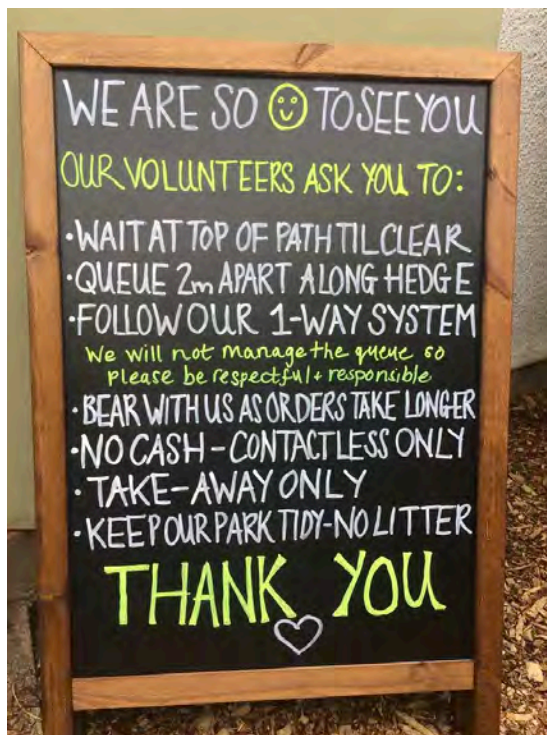 WE ARE SO ☺ TO SEE YOU
OUR VOLUNTEERS ASK YOU TO:
·WAIT AT TOP OF PATH TIL CLEAR
·QUEUE 2m APART ALONG HEDGE
·FOLLOW OUR 1-WAY SYSTEM
We will not manage the queue so
please be respectful + responsible
·BEAR WITH US AS ORDERS TAKE LONGER
·NO CASH - CONTACTLESS ONLY
·TAKE-AWAY ONLY
·KEEP OUR PARK TIDY-NO LITTER
THANK YOU